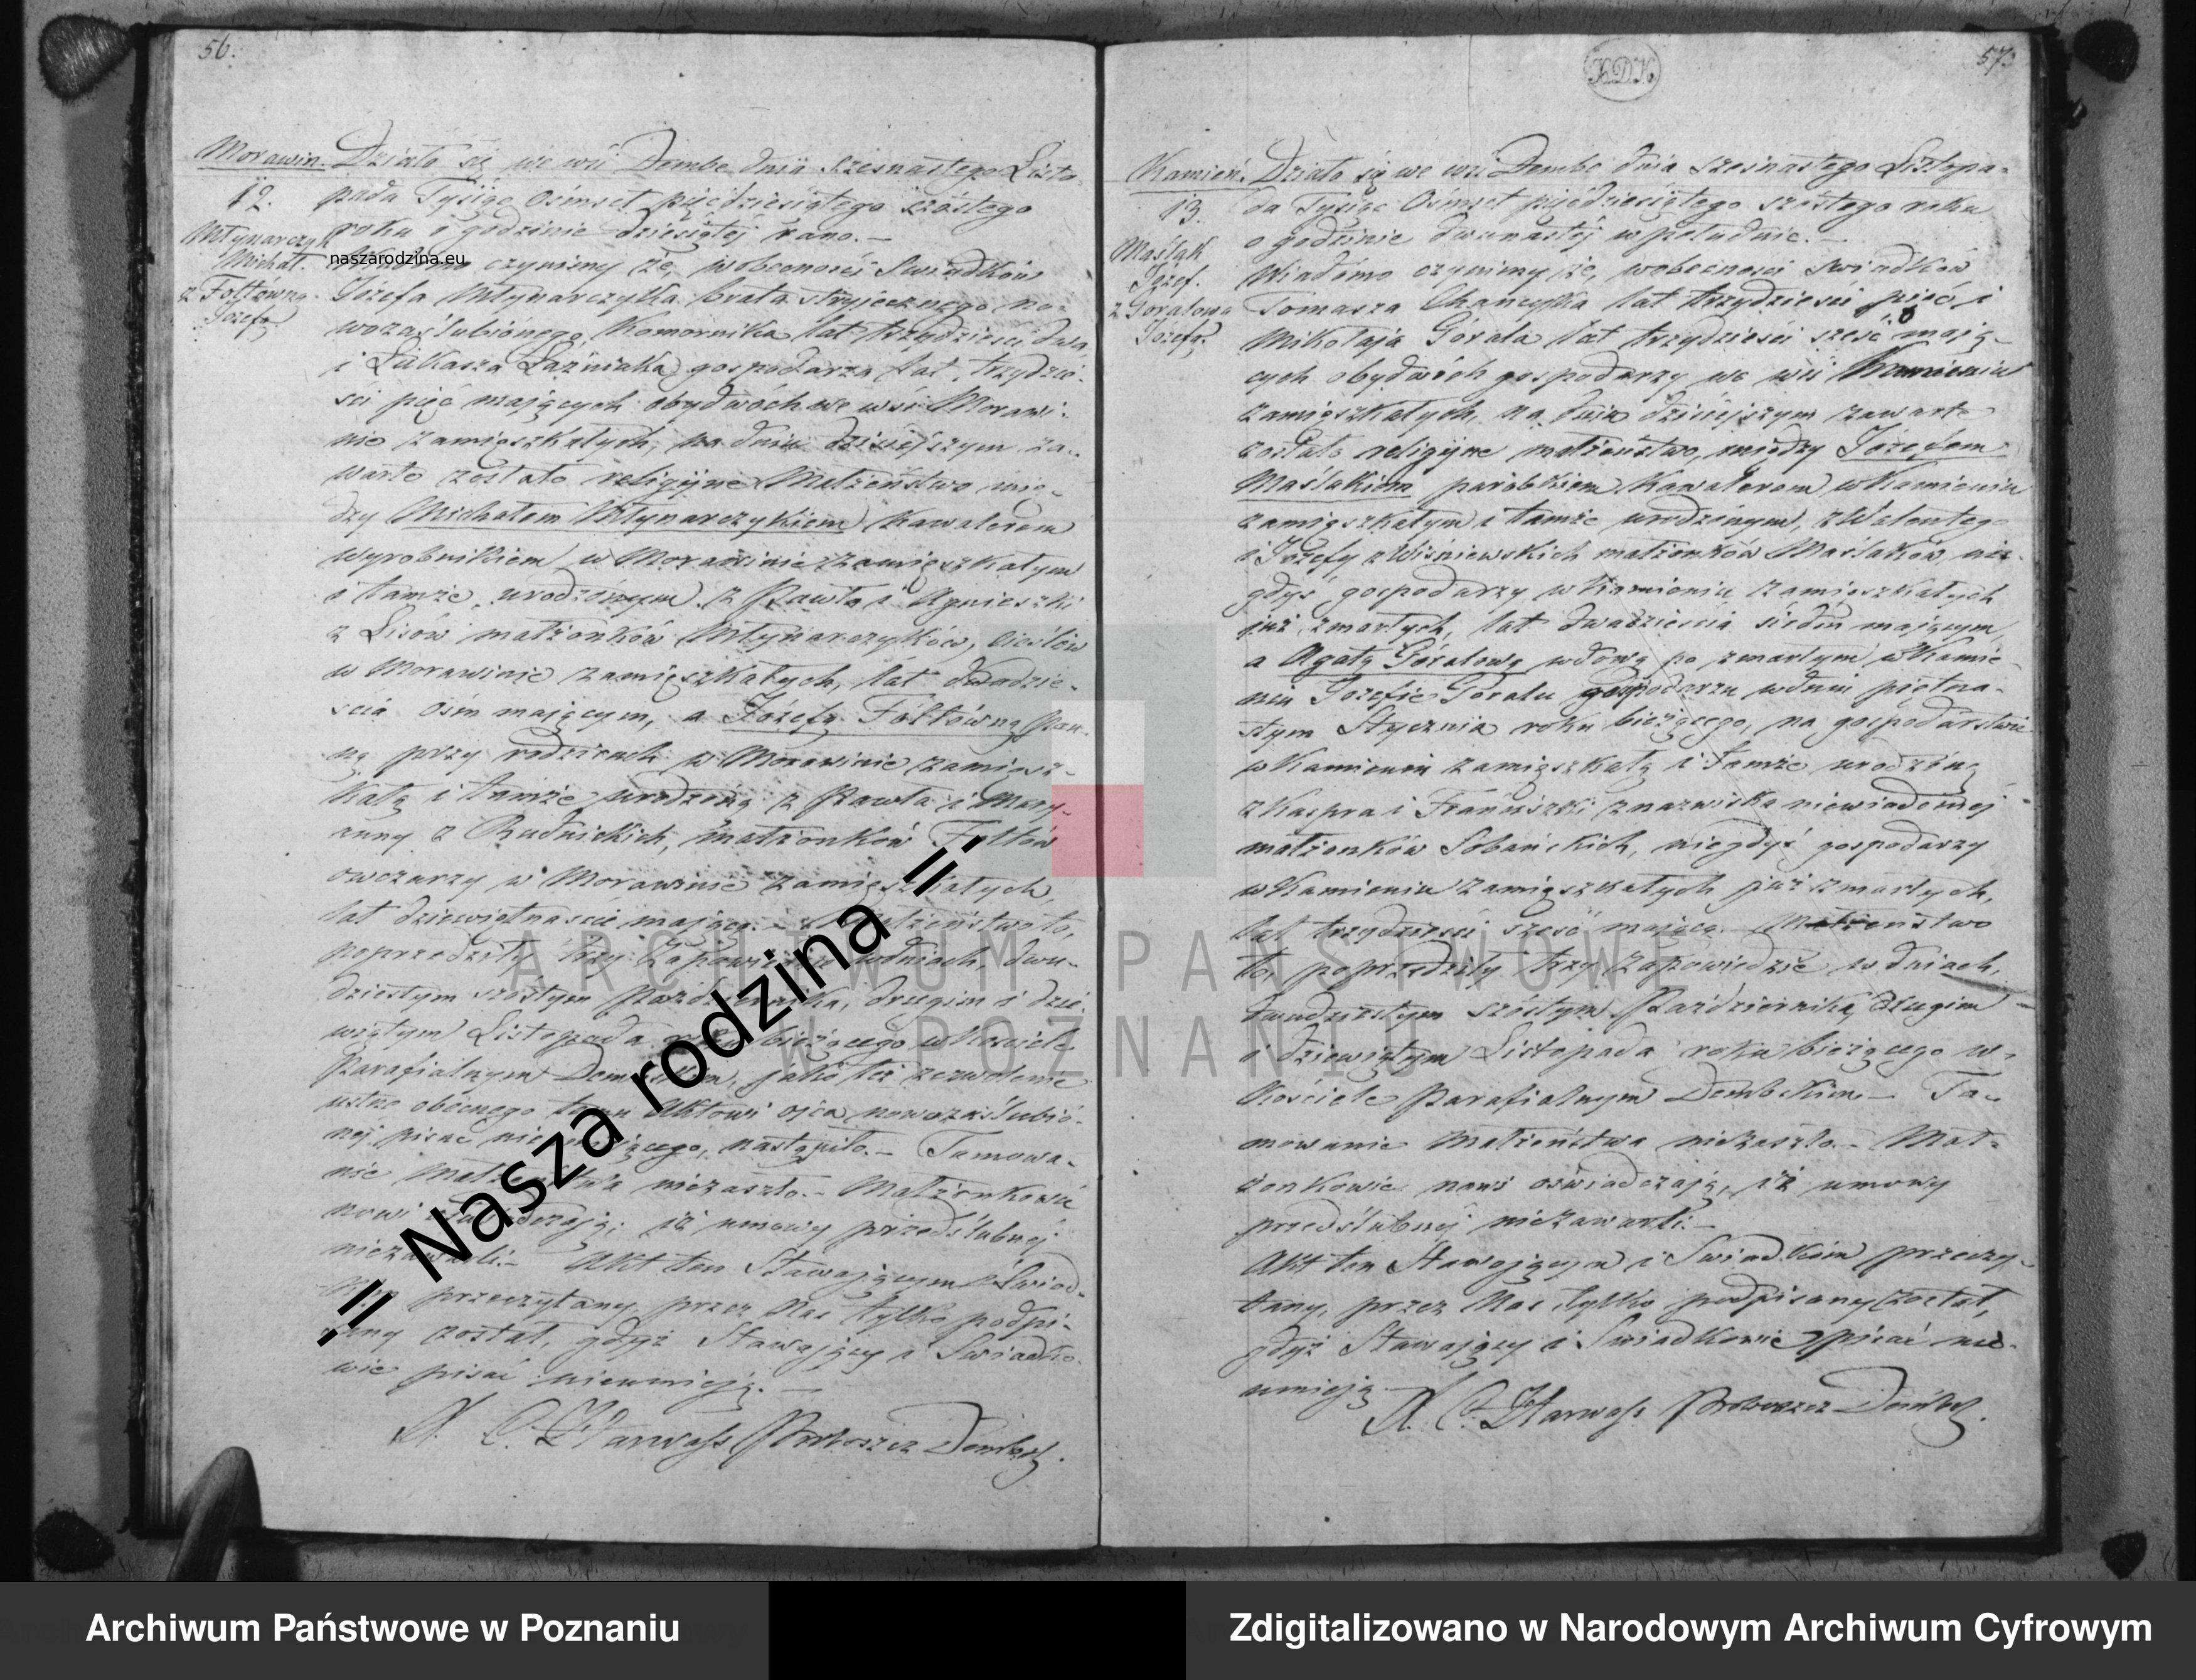 56.
Morawin.
12.
Młynarczyk
Michał.
z Foltówną
Józefą
Działo się we wsi Dembe dnia szesnastego Listo-
pada Tysiąc Ośmset pięćdziesiątego szóstego
roku o godzinie dziesiątej rano.—
czynimy że, wobecności Swiadków
Józefa Młynarczyka brata stryjecznego no-
wozaślubionego, Komornika lat trzydzieści dwa
i Łukasza Łaźniaka gospodarza lat, trzydzie-
ści pięć mających obydwóch we wsi Morawi-
nie zamięszkałych, na dniu dzisiejszym za-
warte zostało religijne Małżeństwo mię-
dzy Michałem Młynarczykiem Kawalerem
wyrobnikiem w Morawinie zamięszkałym
i tamże urodzonym z Pawła i Agnieszki
z Lisów małżonków Młynarczyków, cieślów
w Morawinie zamięszkałych, lat dwadzie-
ścia ośm mającym, a Józefą Foltówną Pan-
ną przy rodzicach w Morawinie zamięsz-
kałą i tamże urodzoną z Pawła i Mary-
anny z Rudnickich, małżonków Foltów
owczarzy w Morawinie zamięszkałych,
lat dziewiętnaście mającą.— Małżeństwo to,
poprzedziły trzy Zapowiedzie w dniach, dwu-
dziestym szóstym Października, drugim i dzie-
wiątym Listopada roku bieżącego w Kościele
Parafialnym Dembskim, jako też zezwolenie
ustne obecnego temu Aktowi ojca nowozaślubio-
nej pisać nie umiejącego, nastąpiło.— Tamowa-
nie Małżeństwa niezaszło.— Małżonkowie
nowi oświadczają; iż umowy przedślubnej
niezawarli.— Akt ten Stawającym i Swiad-
kom przeczytany przez Nas tylko podpi-
sany został, gdyż Stawający i Swiadko-
wie pisać nieumieją.—
Proboszcz Dembsk.
57.
K.D.K.
Kamień.
13.
Maślak
Józef.
z Goralową
Józefą
Działo się we wsi Dembe dnia szesnastego Listopa-
da Tysiąc Ośmset pięćdziesiątego szóstego roku
o godzinie dwunastej w południe.—
Wiadomo czynimy że, wobecności Swiadków
Tomasza lat trzydzieści pięć i
Mikołaja Górala lat trzydzieści sześć mają-
cych obydwóch gospodarzy we wsi Kamieniu
zamięszkałych, na dniu dzisiejszym zawarte
zostało religijne małżeństwo, między Józefem
Maślakiem parobkiem Kawalerem w Kamieniu
zamięszkałym i tamże urodzonym, z Walentego
i Józefy z Wiśniewskich małżonków Maślaków, nie-
gdyś gospodarzy w Kamieniu zamieszkałych
już zmarłych, lat dwadzieścia siedm mającym,
a Agatą Góralową wdową po zmarłym w Kamie-
niu Józefie Góralu gospodarzu w dniu piętna-
stym Stycznia roku bieżącego, na gospodarstwie
w Kamieniu zamięszkałą i tamże urodzoną
z Kaspra i Franciszki z nazwiska niewiadomej
małżonków Sobańskich, niegdyś gospodarzy
w Kamieniu zamięszkałych już zmarłych,
lat trzydzieści sześć mającą.— Małżeństwo
to, poprzedziły trzy Zapowiedzie w dniach,
dwudziestym szóstym Października, drugim
i dziewiątym Listopada roku bieżącego w
Kościele Parafialnym Dembskim.— Ta-
mowanie Małżeństwa niezaszło.— Mał-
żonkowie nowi oświadczają, iż umowy
przedślubnej niezawarli.—
Akt ten Stawającym i Swiadkom przeczy-
tany, przez Nas tylko podpisany został,
gdyż Stawający i Swiadkowie pisać nie-
umieją.
Proboszcz Dembsk.
naszarodzina.eu
=Nasza rodzina=
ARCHIWUM PAŃSTWOWE
W POZNANIU
Archiwum Państwowe w Poznaniu
Zdigitalizowano w Narodowym Archiwum Cyfrowym